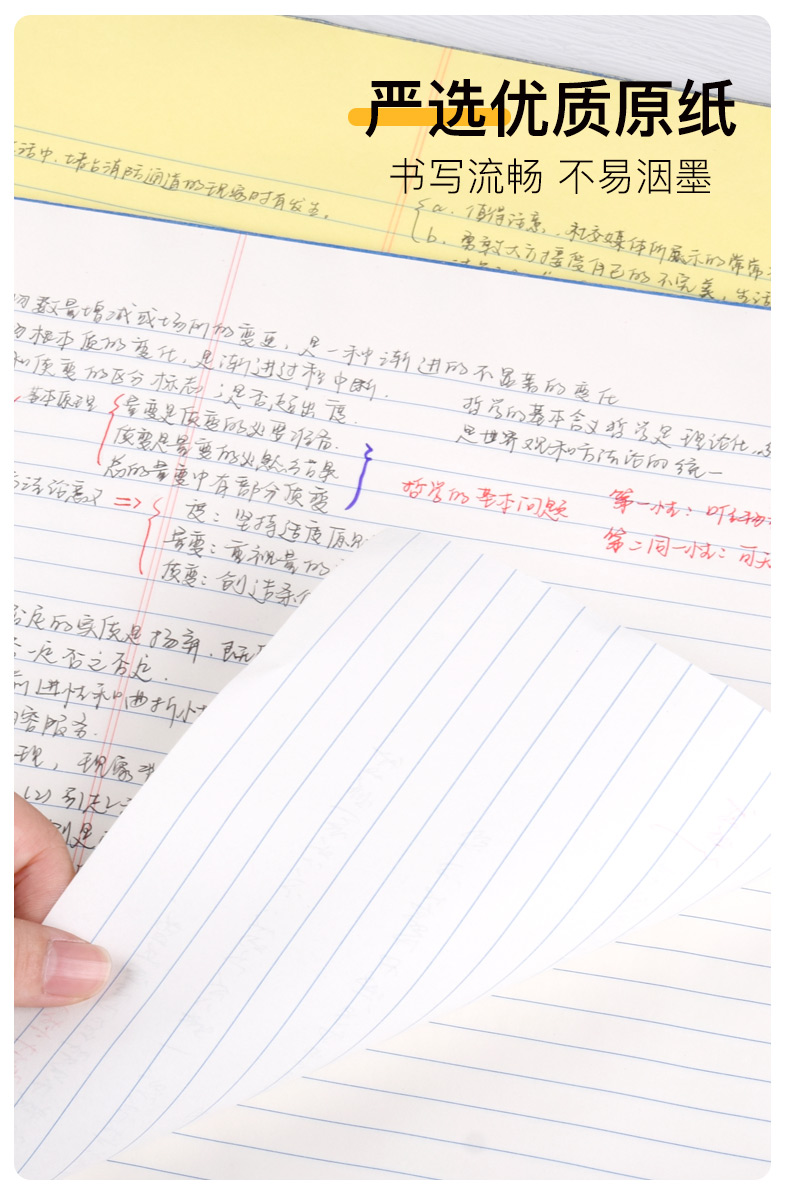 严选优质原纸
书写流畅 不易洇墨
活中,堵占消防通道的现象时有发生。
a. 值得注意,社交媒体所展示的常常
b. 勇敢大方接受自己的不完美,生活
数量增减或场所的变更,是一种渐进的不显著的变化
根本质的变化,是渐进过程中断.
和质变的区分标志:是否超出度.
哲学的基本含义哲学是理论化、
是世界观和方法论的统一
基本原理
量变是质变的必要准备.
质变是量变的必然结果
总的量变中有部分质变
哲学的基本问题
第一性:
第二同一性:可
方法论意义 =>
度:坚持适度原则
量变:重视量的
质变:创造条件
否定的实质是扬弃,既
一定否之否定.
前进性和曲折性
内容服务.
现,现象
(2) 引起